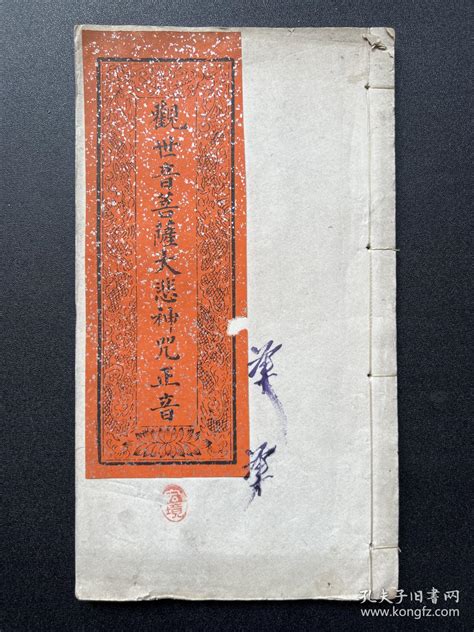 觀世音菩薩大悲神咒正音
孔夫子旧书网
www.kongfz.com